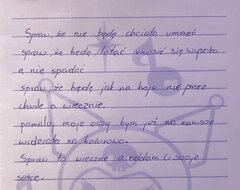 Spraw, że nie będę chciała umrzeć
spraw, że będę latać unosić się wysoko
a nie spadać
spraw że będę jak na haju nie przez
chwile a wiecznie.
pomaluj moje oczy bym już na zawsze
widziała na kolorowo.
Spraw to wiecznie a oddam Ci swoje
serce.